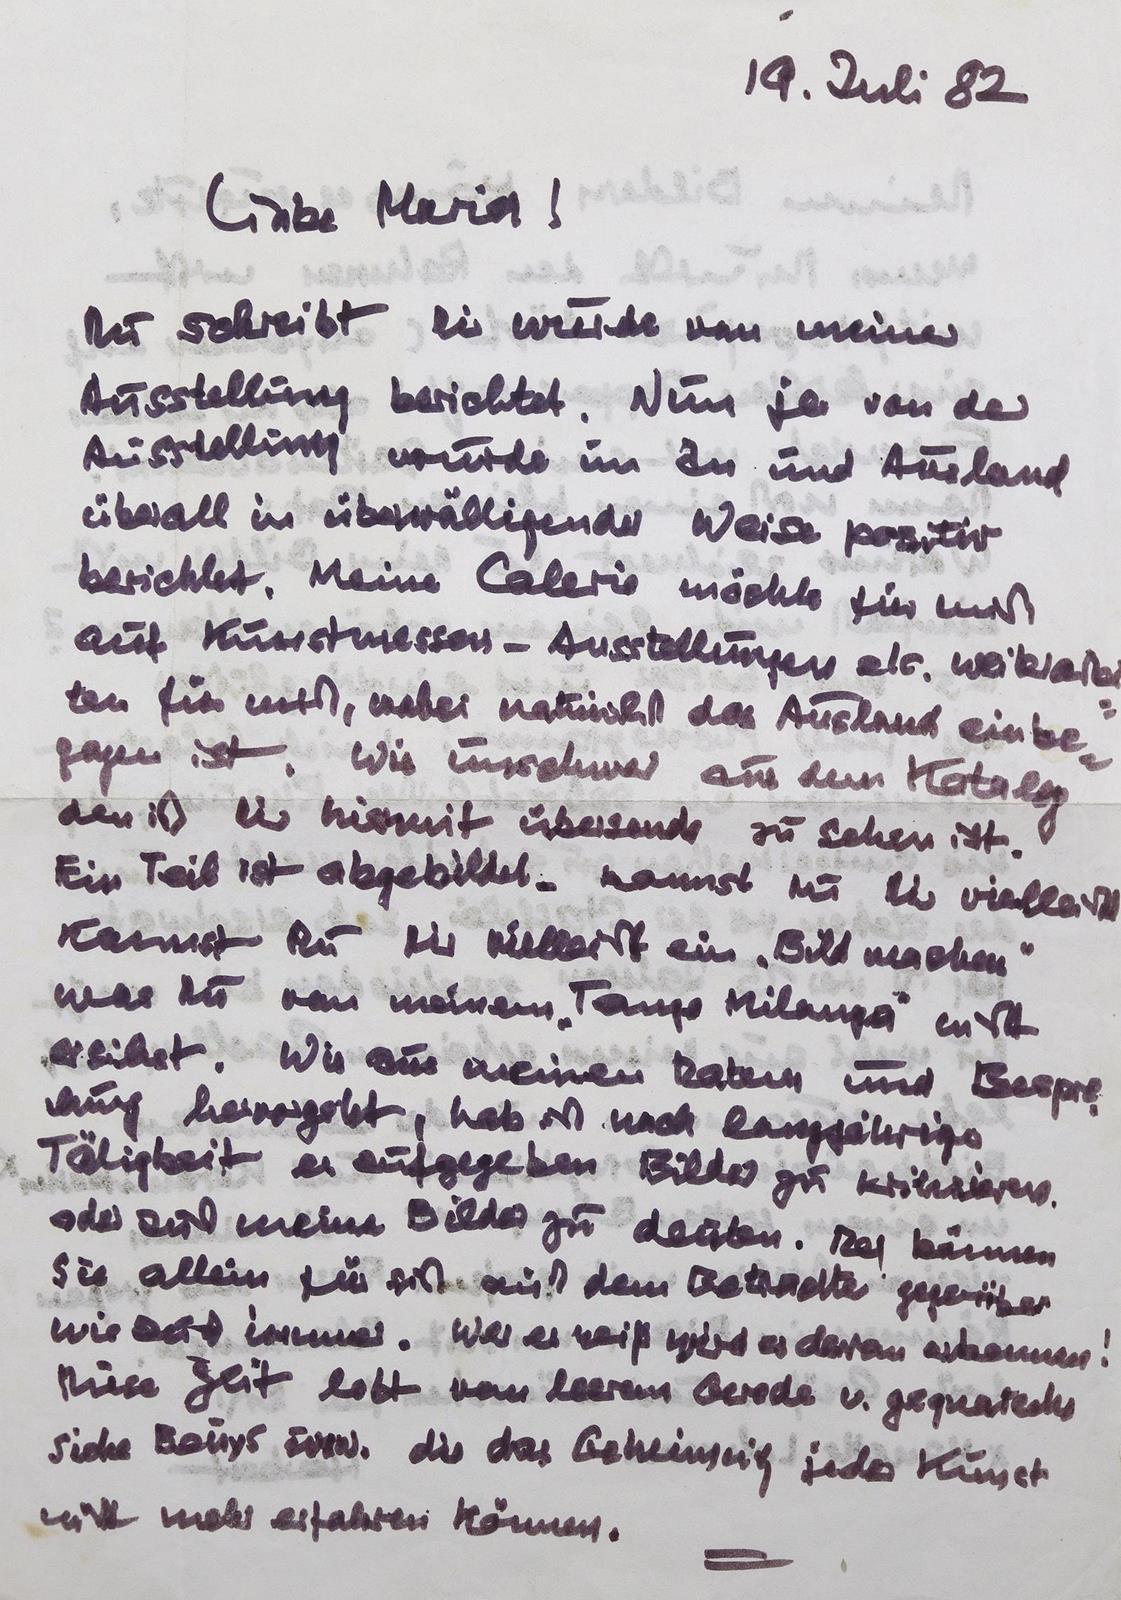 19. Juli 82
Liebe Maria!
Du schreibst Dir wurde von meiner
Ausstellung berichtet. Nun ja von der
Ausstellung wurde im In und Ausland
überall in überwältigender Weise positiv
berichtet. Meine Galerie möchte für mich
auf Kunstmessen - Ausstellungen etc. weiterarbei
ten für mich, wobei natürlich das Ausland einbe=
gen ist. Wie unschwer aus dem Katalog
den ich Dir hiermit übersende zu sehen ist.
Ein Teil ist abgebildet - kannst Du Dir vielleicht
Kannst Du Dir vielleicht ein „Bild machen"
was Du von meinem „Tango Milanga" nicht
ersihst. Wie aus meinen Daten und Bespre
chung hervorgeht, hab ich nach langjähriger
Tätigkeit es aufgegeben Bilder zu kritisieren.
oder auch meine Bilder zu deuten. Das können
Sie allein für sich auch dem Betrachter gegenüber
wie immer. Wer es weiß wird es daran erkennen!
Diese Zeit lebt von leerem Gerede u. gequatsche
siehe Beuys usw. die das Geheimnis jeder Kunst
nicht mehr erfahren können.